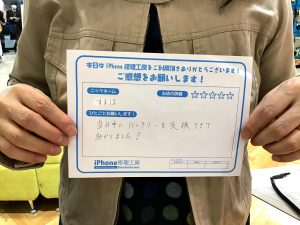 本日は iPhone 修理工房をご利用頂きありがとうございます！
ご感想をお願いします！
ニックネーム
お店の評価 ☆☆☆☆☆
ひとことお願いします！
当日中に バッテリーを交換できて
助かりました！
iPhone修理工房